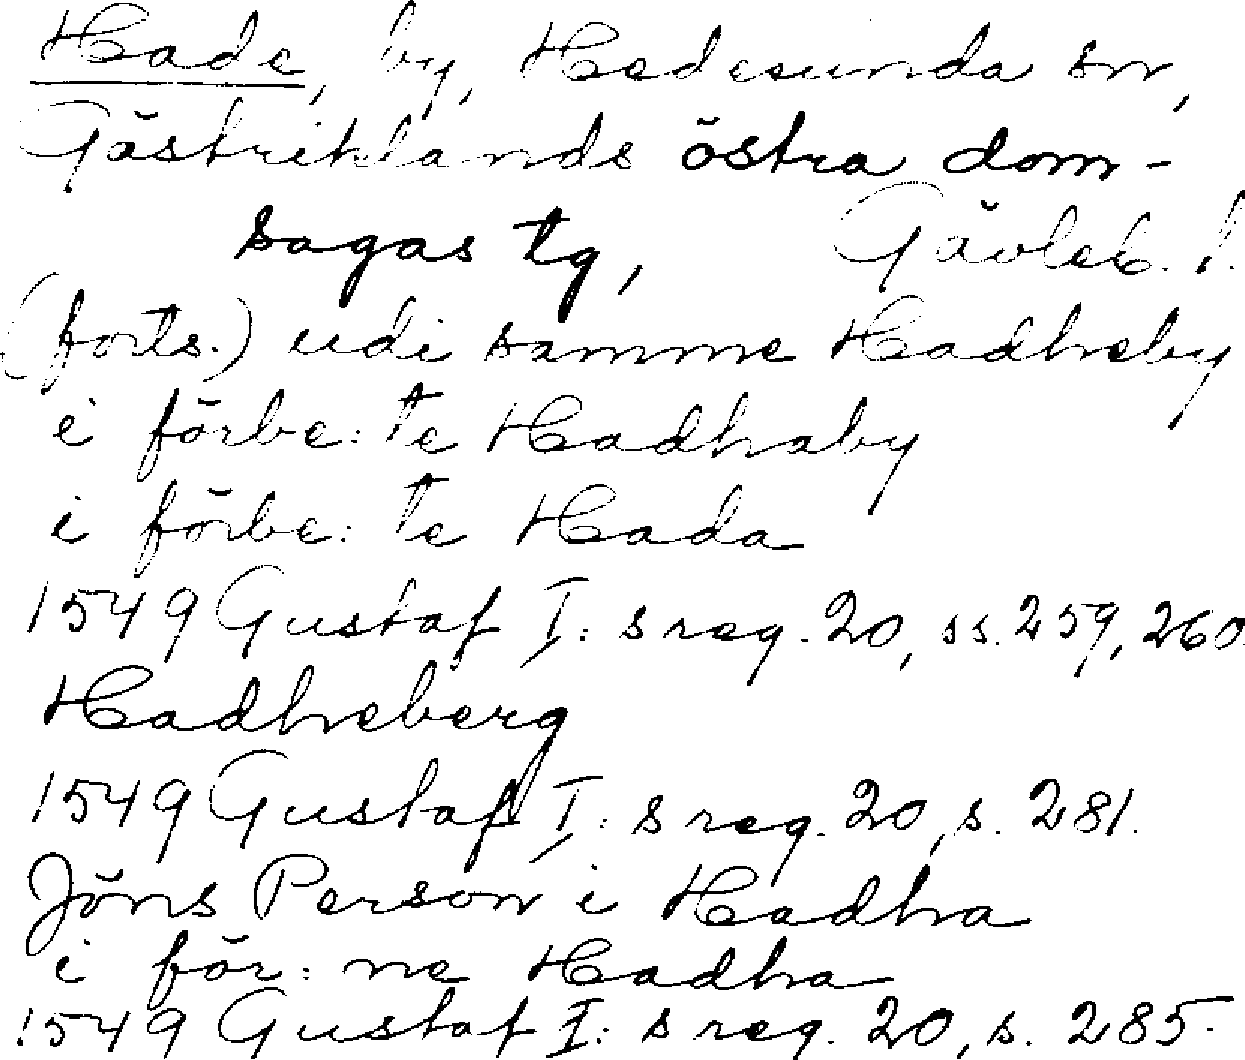 Hade, by, Hedesunda sn,
Gästriklands östra dom-
sagas tg, Gävleb. l.
(forts.) udi samme Hadheby
i förbe: te Hadhaby
i förbe: te Hada
1549 Gustaf I: s reg. 20, ss. 259, 260.
Hadheberg
1549 Gustaf I: s reg. 20, s. 281.
Jöns Person i Hadha
i för: ne Hadha
1549 Gustaf I: s reg. 20, s. 285.